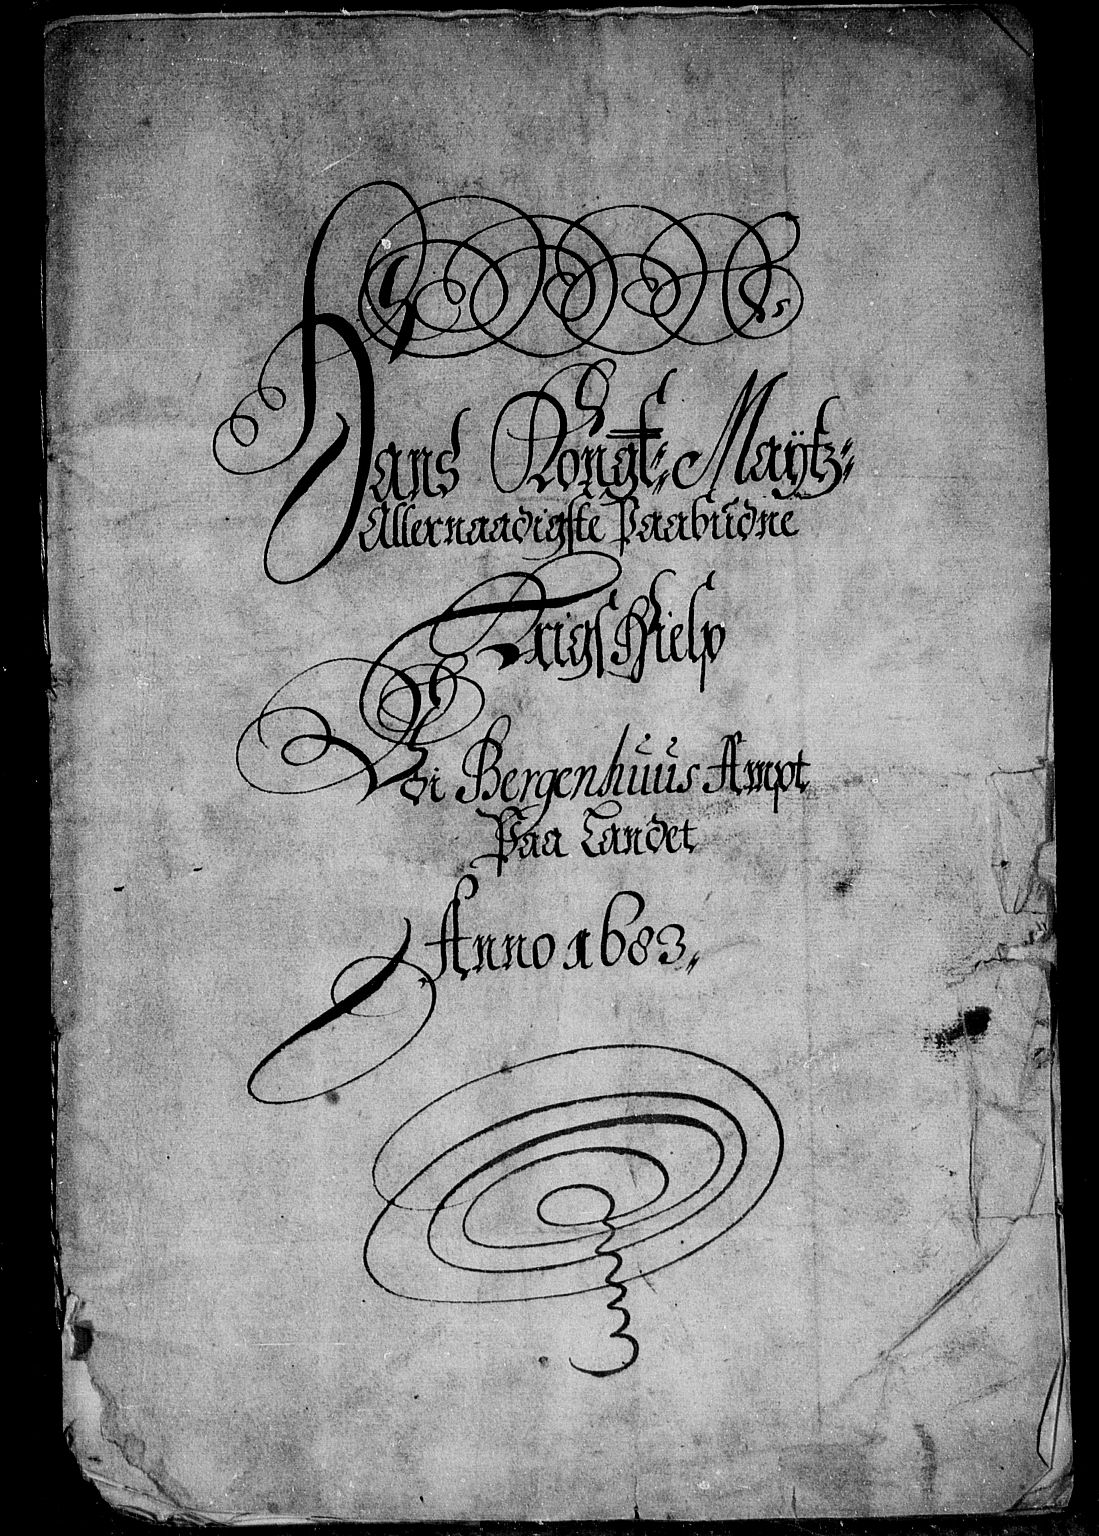 Hans Kongl: Maÿtz:
Allernaadigste Paabudne
Krigs Hielp
Udi Bergenhuus Ampt
Paa Landet
Anno 1683.